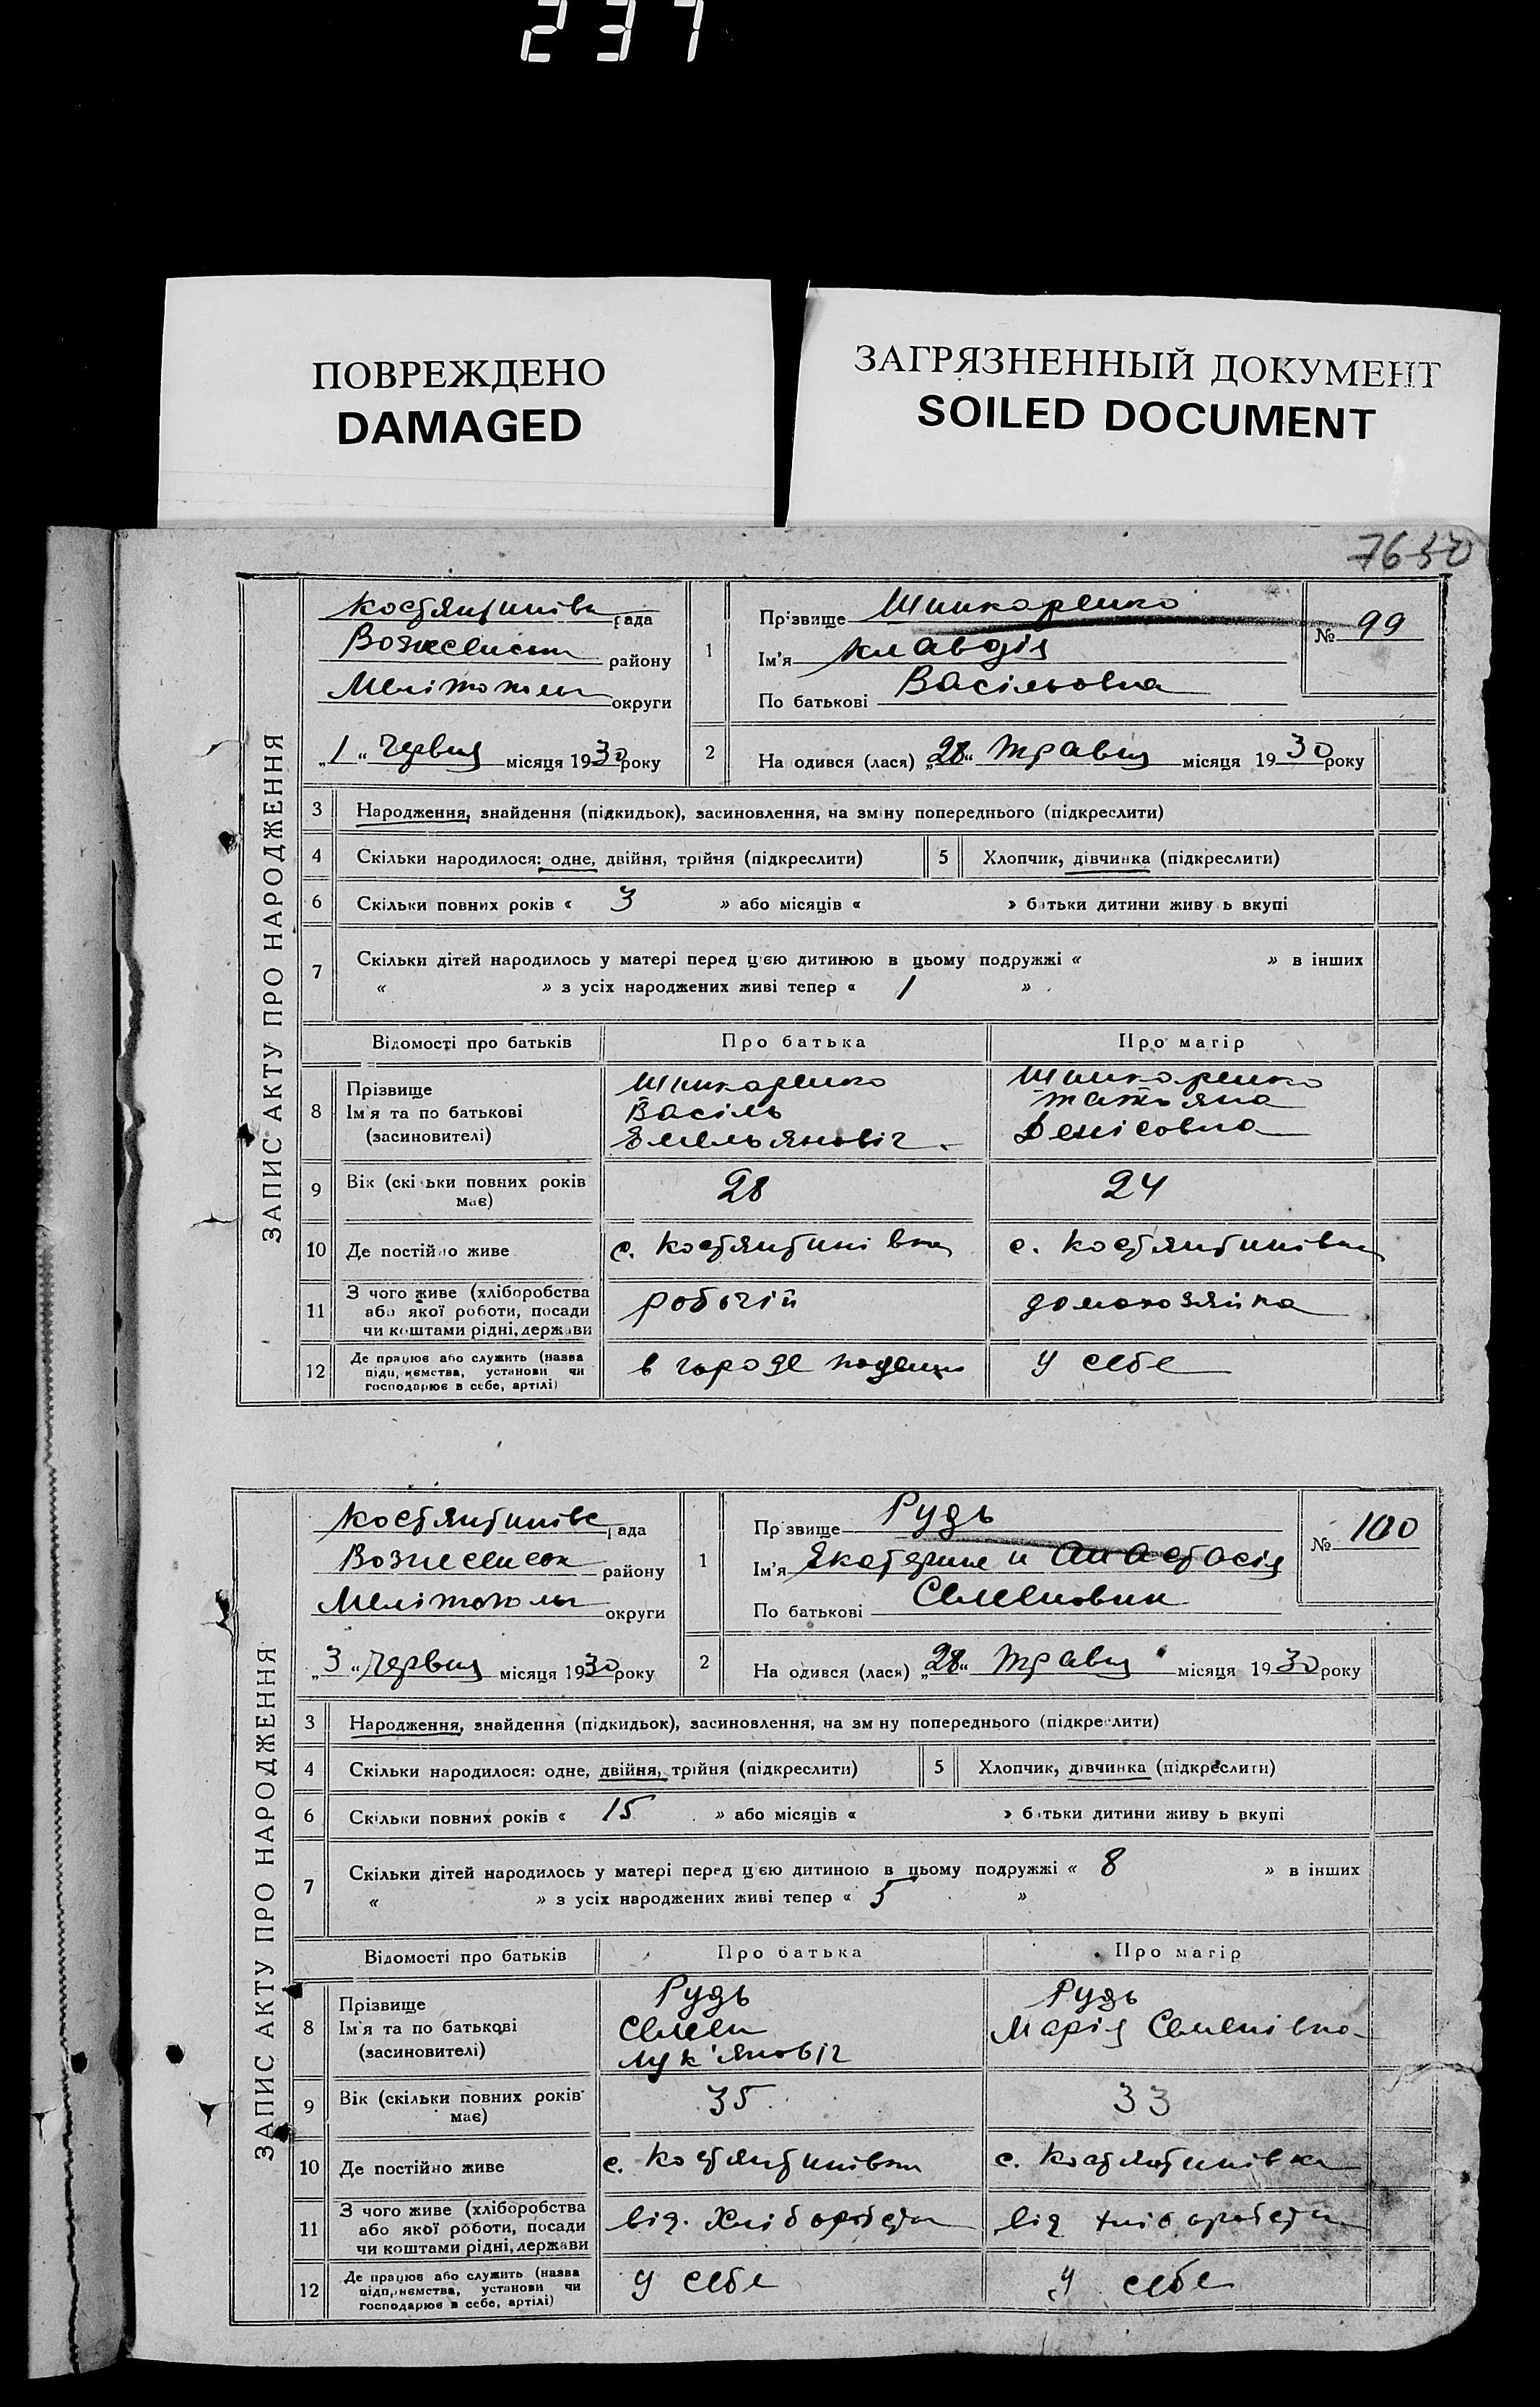 237
ПОВРЕЖДЕНО
DAMAGED
ЗАГРЯЗНЕННЫЙ ДОКУМЕНТ
SOILED DOCUMENT
ЗАПИС АКТУ ПРО НАРОДЖЕННЯ
Костянтинівк рада
района району
Мелітополь округи
„1“ Червня місяця 1930 року
1
Прізвище Шинкаренко
Ім'я Клавдія
По батькові Васільовна
№ 99
2 На одився (лася) „28“ Травня місяця 1930 року
3 Народження, знайдення (підкидьок), засиновлення, на зміну попереднього (підкреслити)
4 Скільки народилося: одне, двійня, трійня (підкреслити) 5 Хлопчик, дівчинка (підкреслити)
6 Скільки повних років « 3 » або місяців « » батьки дитини живуь вкупі
7 Скільки дітей народилось у матері перед цією дитиною в цьому подружжі « » в інших
« » з усіх народжених живі тепер « 1 »
Відомості про батьків Про батька Про матір
8 Прізвище Ім'я та по батькові (засиновителі)
Шинкаренко Васіль Емельяновіч
Шинкаренко Татьяна Денісовна
9 Вік (скільки повних років має) 28 24
10 Де постійно живе с. Костянтинівка с. Костянтинівка
11 З чого живе (хліборобства або якої роботи, посади чи коштами рідні, держави робочій домохозяйка
12 Де працює або служить (назва підприємства, установи чи господарює в себе, артілі) в городе у себе
ЗАПИС АКТУ ПРО НАРОДЖЕННЯ
Костянтинівс рада
Вознесенсок району
Мелітополь округи
„3“ Червня місяця 1930 року
1
Прізвище Рудь
Ім'я Екатерина и Анастасія
По батькові Семеновни
№ 100
2 На одився (лася) „28“ Травня місяця 1930 року
3 Народження, знайдення (підкидьок), засиновлення, на зм ну попереднього (підкреслити)
4 Скільки народилося: одне, двійня, трійня (підкреслити) 5 Хлопчик, дівчинка (підкреслити)
6 Скільки повних років « 15 » або місяців « » батьки дитини живу ь вкупі
7 Скільки дітей народилось у матері перед цією дитиною в цьому подружжі « 8 » в інших
« » з усіх народжених живі тепер « 5 »
Відомості про батьків Про батька Про матір
8 Прізвище Ім'я та по батькові (засиновителі)
Рудь Семен Лук'яновіч
Рудь Марія Семенівна
9 Вік (скільки повних років має) 35 33
10 Де постійно живе с. Костянтинівка с. Костянтинівка
11 З чого живе (хліборобства або якої роботи, посади чи коштами рідні, держави від. Хліборобства від хліборобства
12 Де працює або служить (назва підприємства, установи чи господарює в себе, артілі) у себе у себе